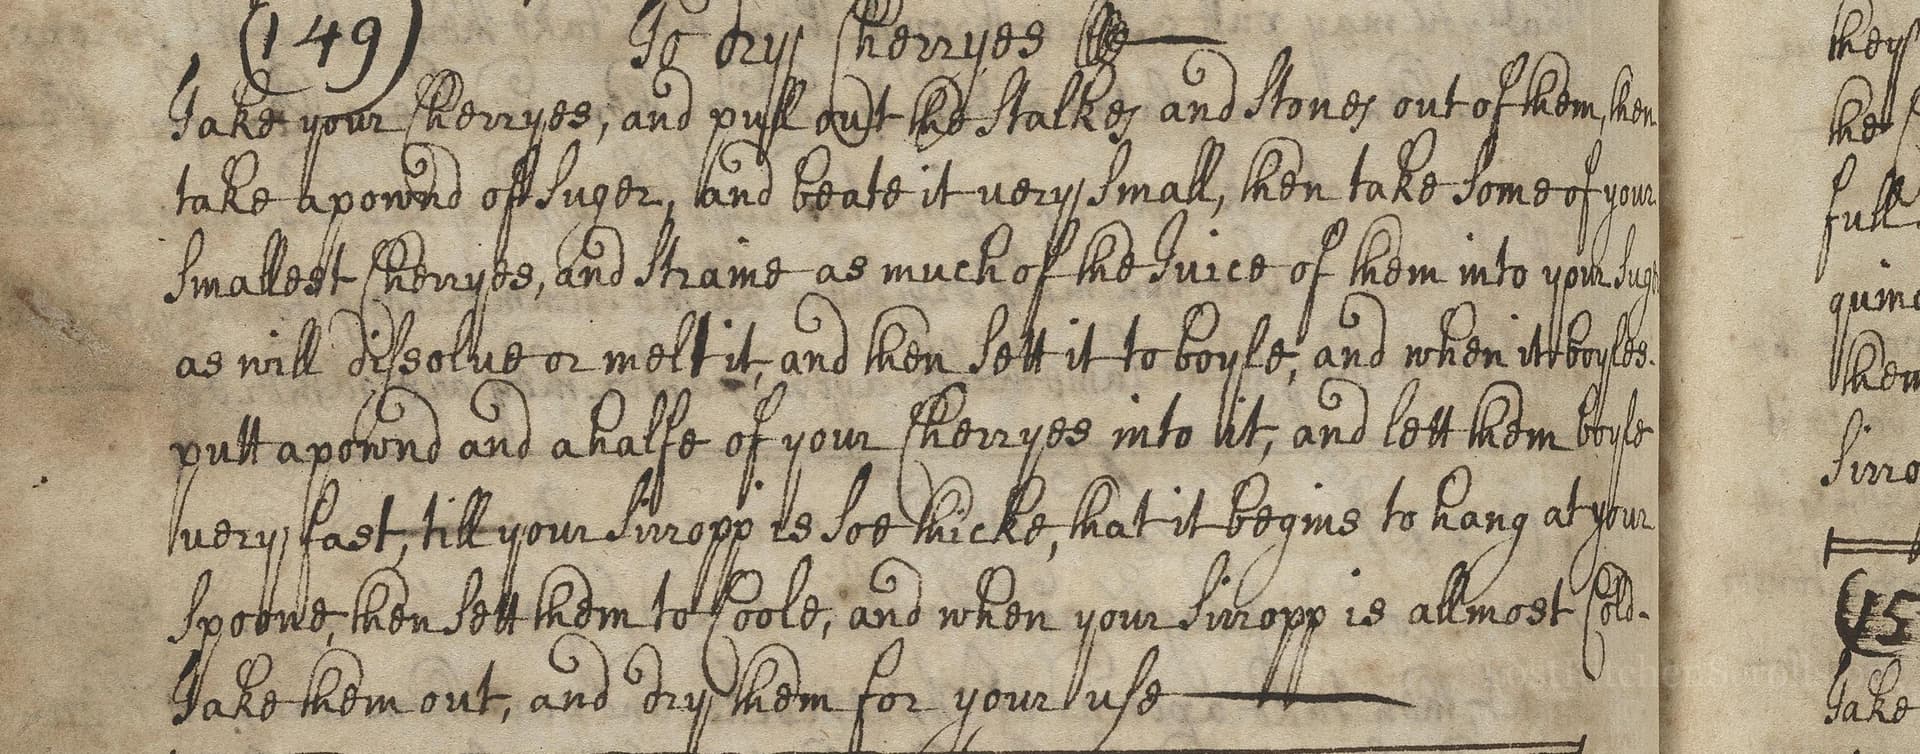 (149) To dry Cherryes
Take your Cherryes, and pull out the Stalkes and Stones out of them, then
take a pownd off Suger, and beate it very small, then take some of your
smallest Cherryes, and straine as much of the Juice of them into your Suger
as will dissolve or melt it, and then sett it to boyle, and when it boyles.
putt a pownd and a halfe of your Cherryes into it, and lett them boyle
very fast, till your Sirropp is soe thicke, that it begins to hang at your
spoone, then sett them to Coole, and when your Sirropp is allmost Cold.
Take them out, and dry them for your use
they
the
full
quinc
them
Sirro
(15
Take